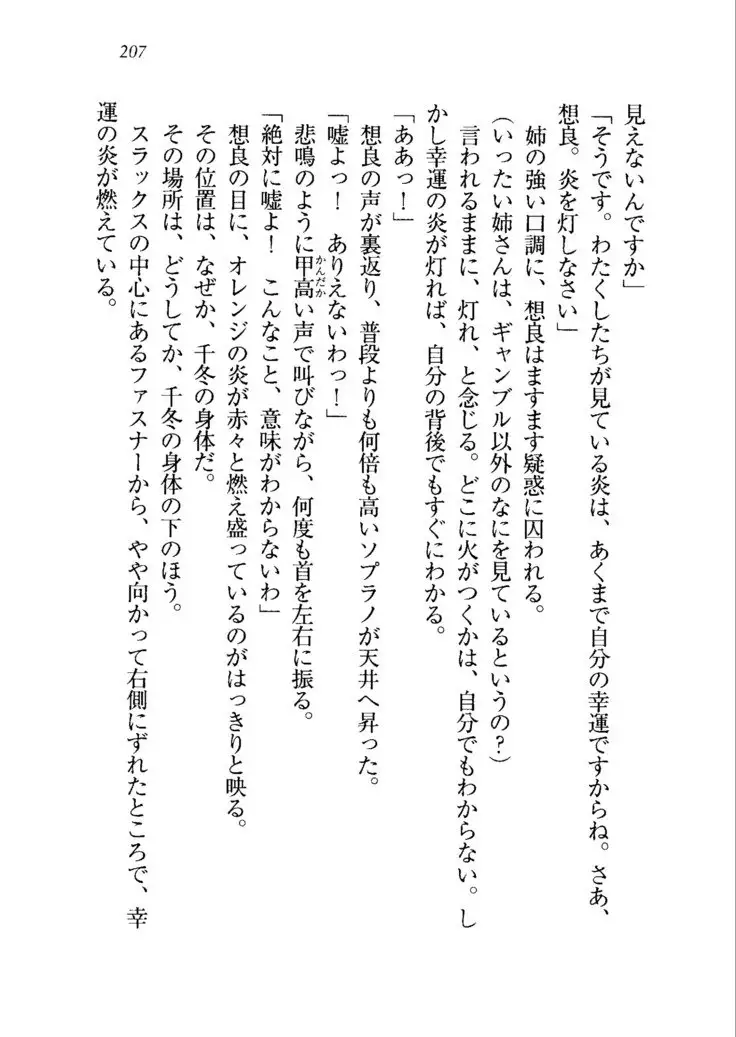 207
見えないんですか」
「そうです。わたくしたちが見ている炎は、あくまで自分の幸運ですからね。さあ、
想良。炎を灯しなさい」
姉の強い口調に、想良はますます疑惑に囚われる。
(いったい姉さんは、ギャンブル以外のなにを見ているというの?)
言われるままに、灯れ、と念じる。どこに火がつくかは、自分でもわからない。し
かし幸運の炎が灯れば、自分の背後でもすぐにわかる。
「ああっ!」
想良の声が裏返り、普段よりも何倍も高いソプラノが天井へ昇った。
「嘘よっ! ありえないわっ!」
悲鳴のように甲高い声で叫びながら、何度も首を左右に振る。
かんだか
「絶対に嘘よ! こんなこと、意味がわからないわ」
想良の目に、オレンジの炎が赤々と燃え盛っているのがはっきりと映る。
その位置は、なぜか、千冬の身体だ。
その場所は、どうしてか、千冬の身体の下のほう。
スラックスの中心にあるファスナーから、やや向かって右側にずれたところで、幸
運の炎が燃えている。